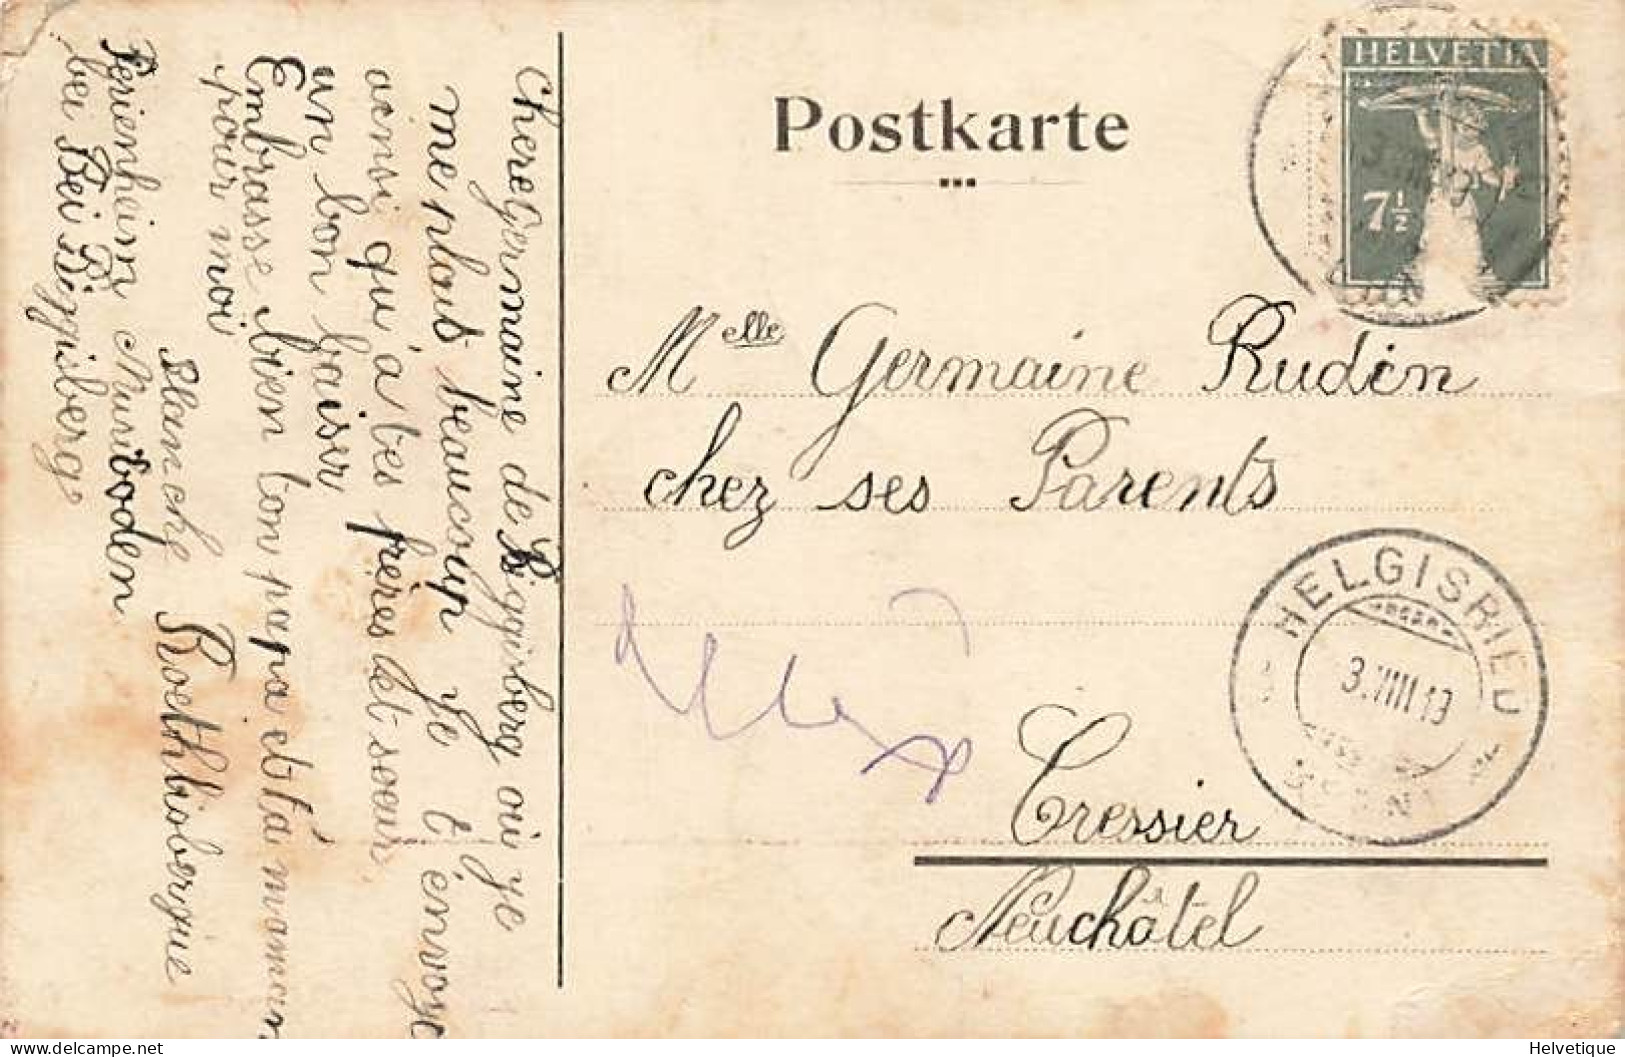 Postkarte
HELVETIA
7½
Chere Germaine de Riggisberg ou je
me plais beaucoup Je t'envoye
ainsi qu'à tes frères et sœur
un bon baiser
Embrasse bien ton papa et ta maman
pour moi
Blanche
Ferienheim Muriboden
bei Bei R
bei Riggisberg
Melle Germaine Rudin
chez ses Parents
Cressier
Neuchâtel
HELGISRIED
3.VIII.19
delcampe.net
Helvetique